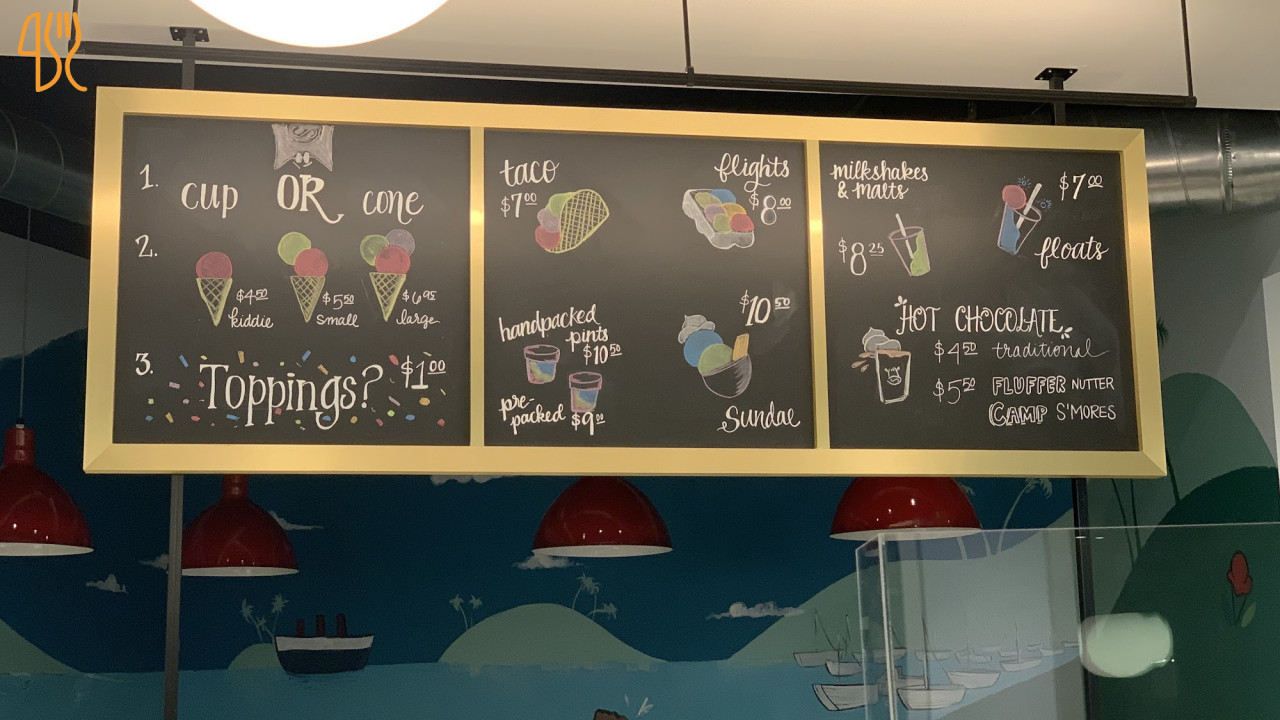 1.
cup OR cone
2.
$4.50 kiddie
$5.50 small
$6.95 large
3.
Toppings? $1.00
taco
$7.00
flights
$8.00
handpacked
pints
$10.50
pre-
packed $9.00
$10.50
Sundae
milkshakes
& malts
$8.25
$7.00
floats
HOT CHOCOLATE
$4.50 traditional
$5.50 FLUFFER NUTTER
CAMP S'MORES